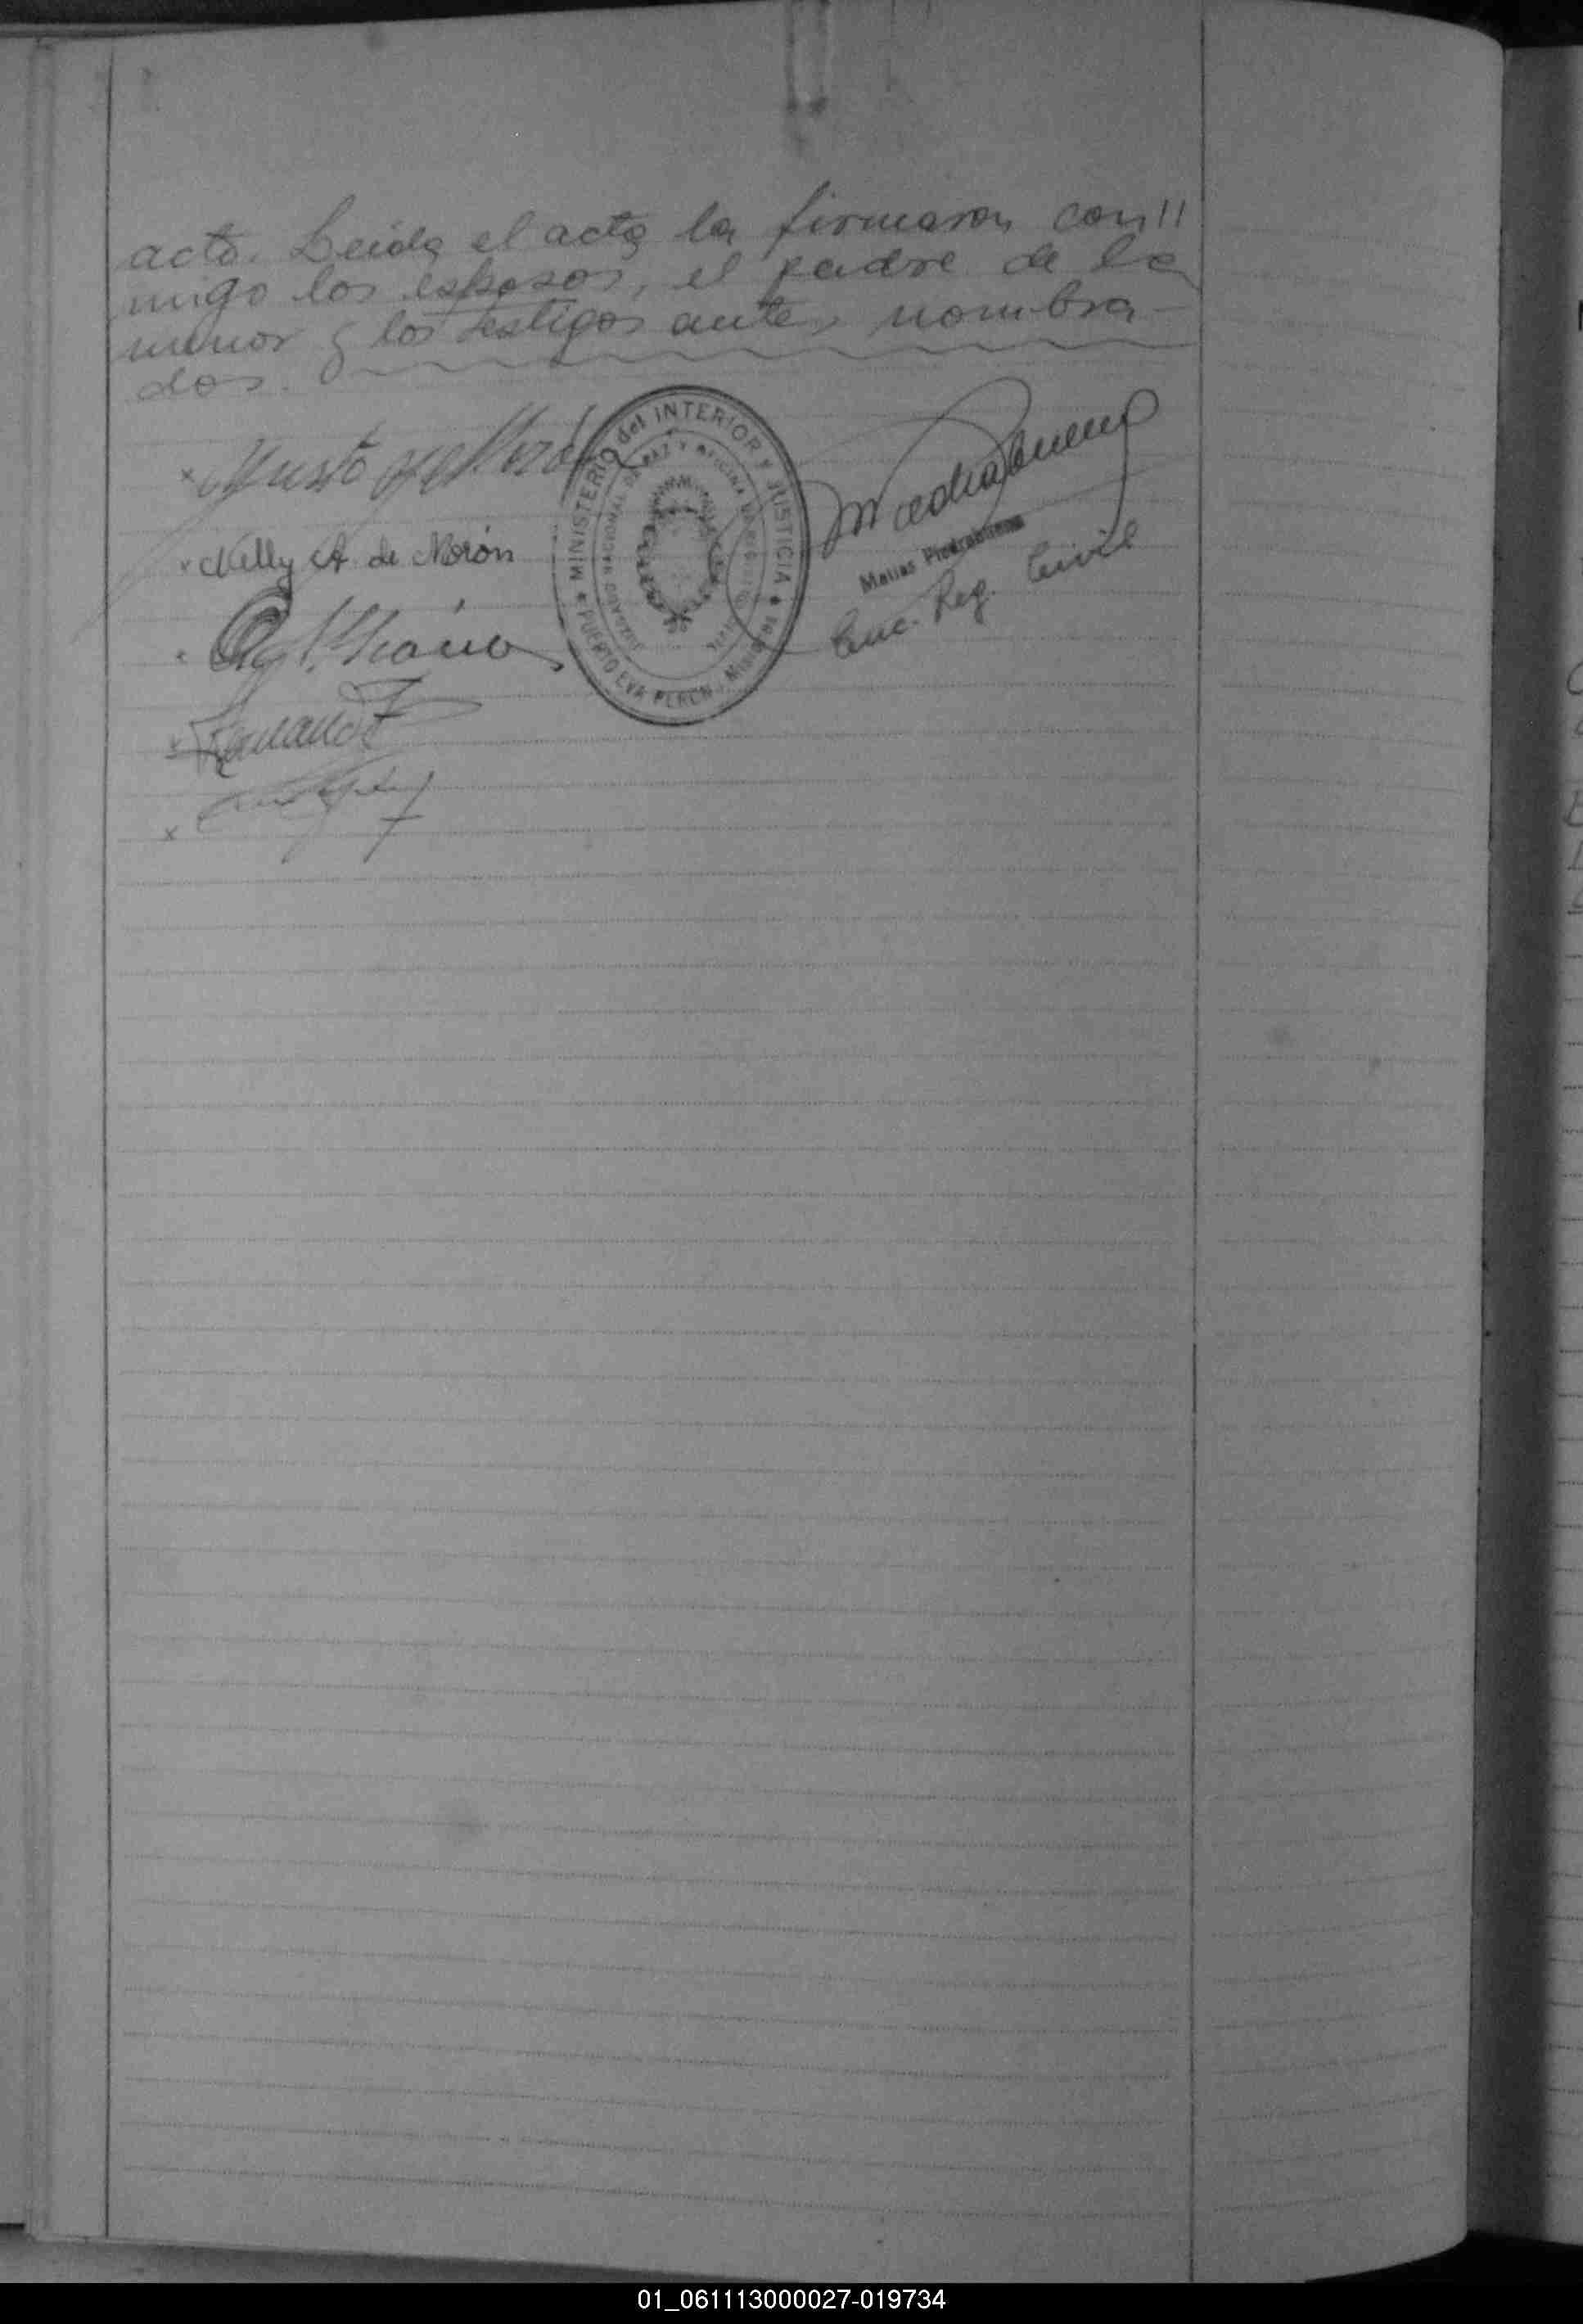 acto. Leida el acta la firmaron con!!
migo los esposos, el padre de la
menor y los testigos antes nombra-
dos.
MINISTERIO del INTERIOR Y JUSTICIA
JUZGADO NACIONAL DE PAZ Y OFICINA
PUERTO EVA PERON - Misiones
Justo Morón
Nelly A. de Morón
Matias Piedrabuena
Enc. Reg. Civil
01_061113000027-019734